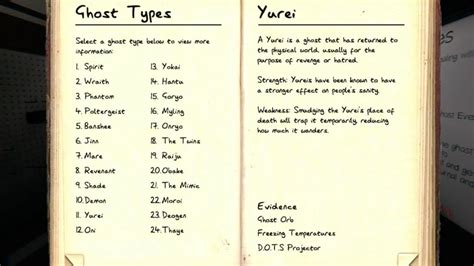 Ghost Types
Select a ghost type below to view more
information:
1. Spirit
2. Wraith
3. Phantom
4. Poltergeist
5. Banshee
6. Jinn
7. Mare
8. Revenant
9. Shade
10. Demon
11. Yurei
12. Oni
13. Yokai
14. Hantu
15. Goryo
16. Myling
17. Onryo
18. The Twins
19. Raiju
20. Obake
21. The Mimic
22. Moroi
23. Deogen
24. Thaye
Yurei
A Yurei is a ghost that has returned to
the physical world, usually for the
purpose of revenge or hatred.
Strength: Yureis have been known to have
a stronger effect on people's sanity.
Weakness: Smudging the Yurei's place of
death will trap it temporarily, reducing
how much it wanders.
Evidence
Ghost Orb
Freezing Temperatures
D.O.T.S Projector